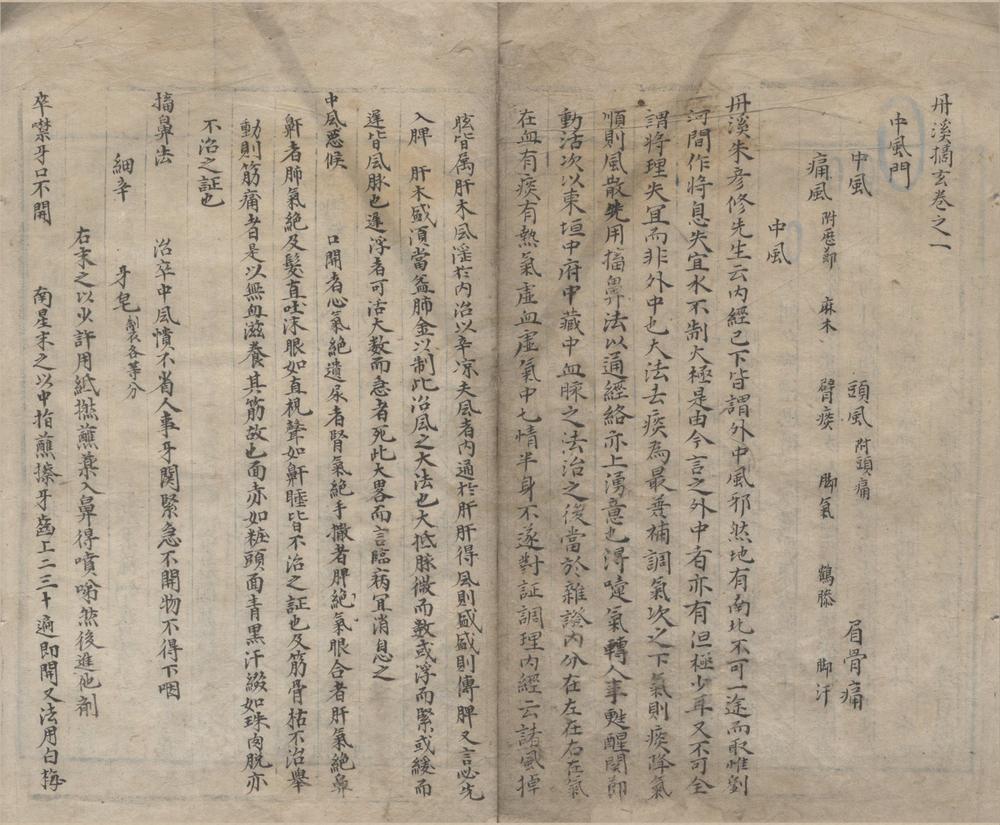 丹溪摘玄卷之一
中風門
中風 頭風 附頭痛 眉骨痛
痛風 附歷節 麻木 臂痰 脚氣 鶴膝 脚汗
中風
丹溪朱彥修先生云内經已下皆謂外中風邪然地有南北不可一途而取惟劉
河間作將息失宜水不制火極是由今言之外中者亦有但極少耳又不可全
謂將理失宜而非外中也大法去痰為最養補調氣次之下氣則痰降氣
順則風散先用搐鼻法以通經絡亦上湧意也得嚏氣轉人事甦醒関節
動活次以東垣中府中藏中血脉之法治之後當於雜證内分在左在右在氣
在血有痰有熱氣虛血虛氣中七情半身不遂對証調理内經云諸風掉
眩皆属肝木風淫於内治以辛凉夫風者内通於肝肝得風則盛盛則傳脾又言必先
入脾 肝木盛湏當益肺金以制此治風之大法也大抵脉微而數或浮而緊或緩而
遲皆風脉也遲浮者可活大數而急者死此大畧而言臨病冝消息之
中風惡候 口開者心氣絕遺尿者腎氣絕手撒者脾絕氣眼合者肝氣絕鼻
鼾者肺氣絕及髮直吐沫眼如直視聲如鼾睡皆不治之証也及筋骨枯不治舉
動則筋痛者是以無血滋養其筋故也面赤如粧頭面青黑汗綴如珠肉脱亦
不治之証也
搐鼻法 治卒中風憒不省人事牙関緊急不開物不得下咽
細辛 牙皂 製衣各等分
右末之以少許用紙撚蘸藥入鼻得噴嚏然後進他劑
卒噤牙口不開 南星末之以中指蘸擦牙齒上二三十遍即開又法用白梅